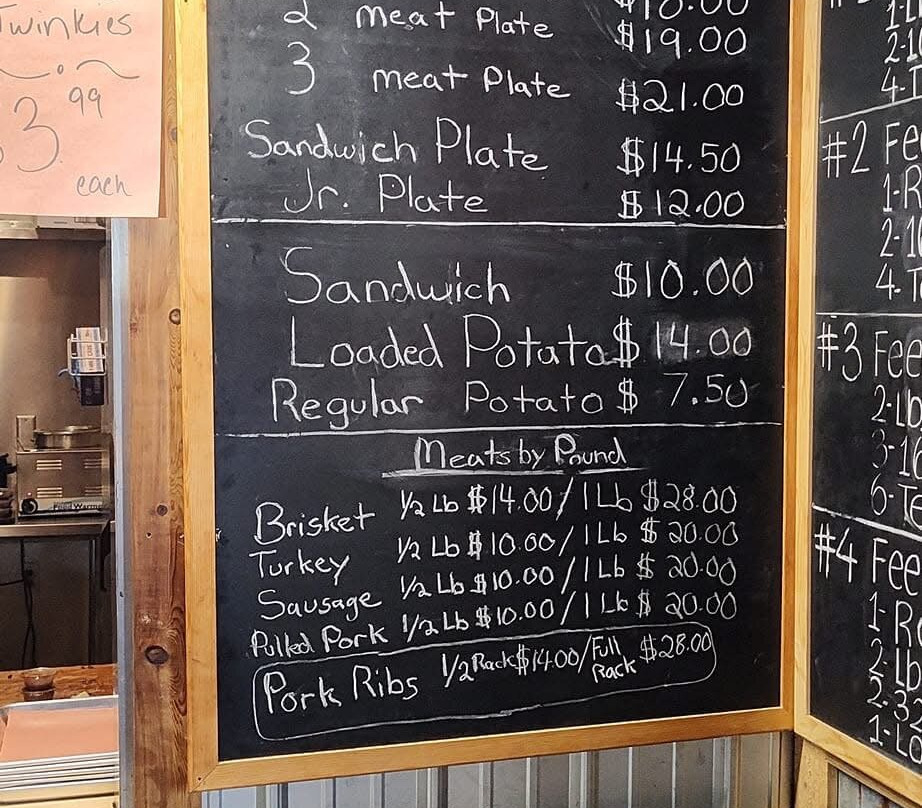 Twinkies
3.99
each
2 meat Plate $19.00
3 meat Plate $21.00
Sandwich Plate $14.50
Jr. Plate $12.00
Sandwich $10.00
Loaded Potato $14.00
Regular Potato $ 7.50
Meats by Pound
Brisket 1/2 Lb $14.00 / 1 Lb $28.00
Turkey 1/2 Lb $10.00 / 1 Lb $ 20.00
Sausage 1/2 Lb $10.00 / 1 Lb $ 20.00
Pulled Pork 1/2 Lb $10.00 / 1 Lb $ 20.00
Pork Ribs 1/2 Rack $14.00 / Full Rack $28.00
#2 Fee
1-R
2-1
4-T
#3 Fee
2-Lb
6-T
#4 Fee
1-R
2-Lb
2-3
1-Lo